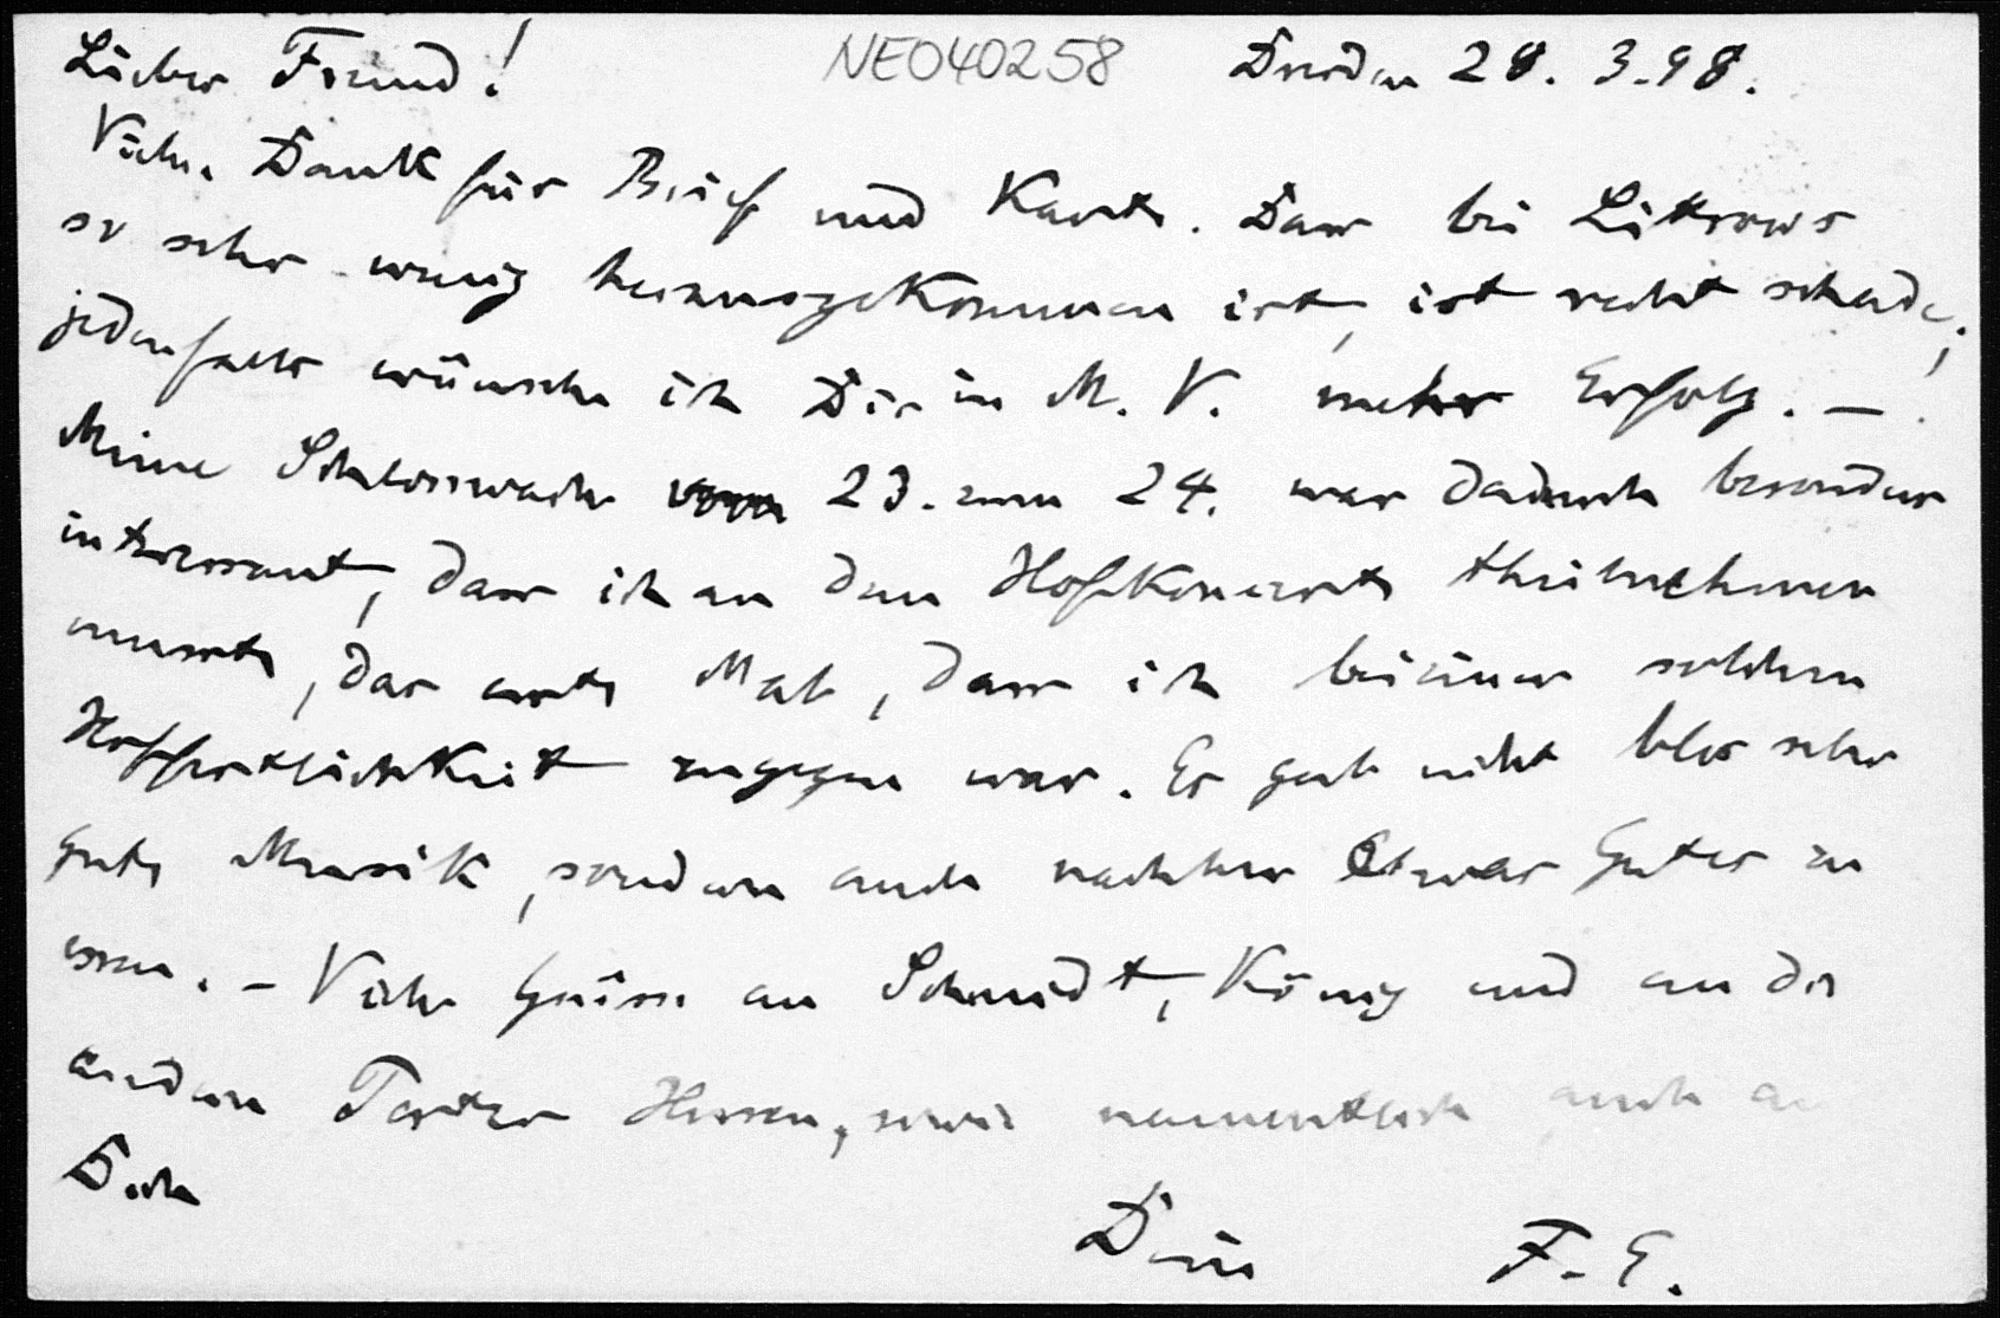 Lieber Freund! NEO40258 Dresden 28. 3. 98.
Vielen Dank für Brief und Karte. Dass bei Littrows
so sehr wenig herausgekommen ist, ist recht schade;
jedenfalls wünsche ich Dir in M. V. mehr Erfolg. —
Meine Schlosswache vom 23. zum 24. war dadurch besonders
interessant, dass ich an dem Hofkonzerte theilnehmen
musste, das erste Mal, dass ich bei einer solchen
Hoffestlichkeit zugegen war. Es gab nicht blos sehr
gute Musik, sondern auch nachher Etwas Gutes zu
essen. – Viele Grüsse an Schmidt, König und an die
andern Herren, sowie namentlich auch an
Dich
Dein F. E.